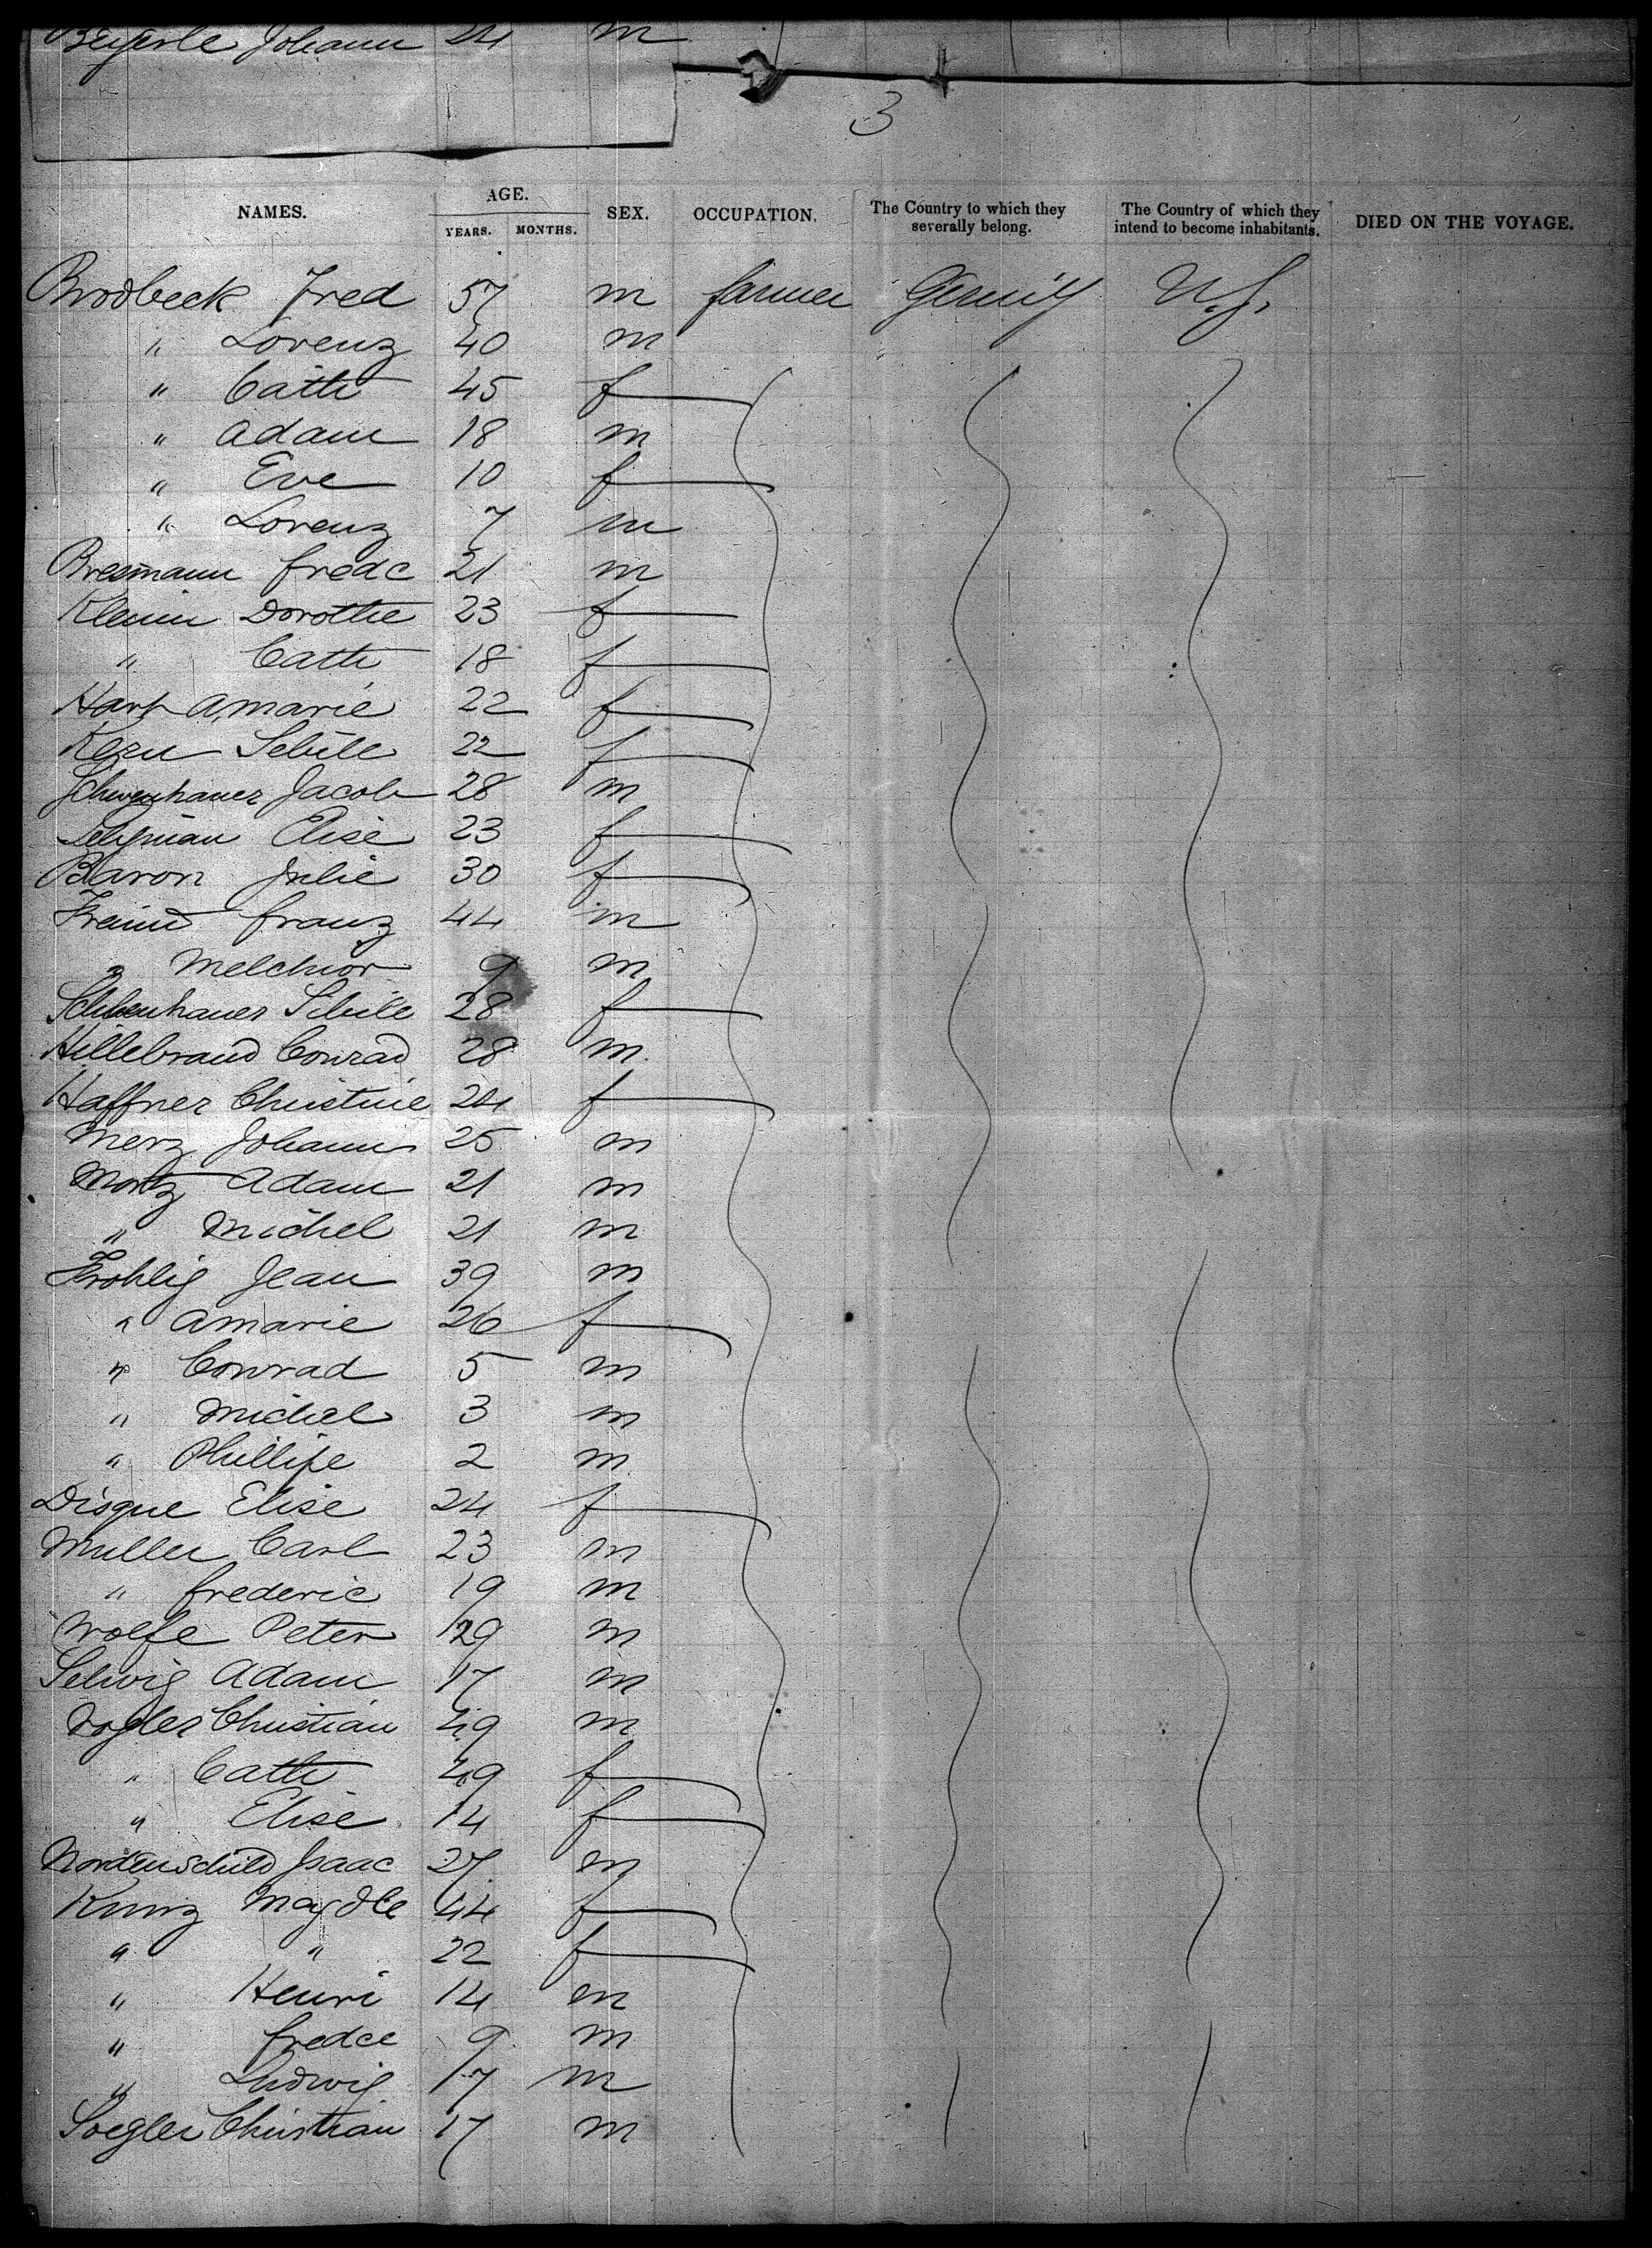 Beyerle Johann 24 m
3
NAMES. AGE. YEARS. MONTHS. SEX. OCCUPATION. The Country to which they severally belong. The Country of which they intend to become inhabitants. DIED ON THE VOYAGE.
Brodbeck Fred 57 m farmer Germ'y U.S.
" Lorenz 40 m
" Cath 45 f
" Adam 18 m
" Eve 10 f
" Lorenz 7 m
Bresmann fredc 21 m
Klemm Dorothe 23 f
" Cath 18 f
Hart Amarie 22 f
Kern Sebile 22 f
Jacob 28 m
Seligman Elise 23 f
Baron Julie 30 f
Freund franz 44 m
" Melchior 9 m
Sibile 28 f
Hillebrand Conrad 28 m
Haffner Christine 24 f
Merz Johann 25 m
Mortz Adam 21 m
" Michel 21 m
Frohlig Jean 39 m
" Amarie 26 f
" Conrad 5 m
" Michel 3 m
" Phillipe 2 m
Disque Elise 24 f
Muller Carl 23 m
" frederic 19 m
Wolfe Peter 29 m
Selwig Adam 17 m
Vogler Christian 49 m
" Cath 49 f
" Elise 14 f
Nordenschild Isaac 27 m
Kunz Magdle 44 f
" " 22 f
" Henri 14 m
" fredce 9 m
" Ludwig 17 m
Soegler Christian 17 m